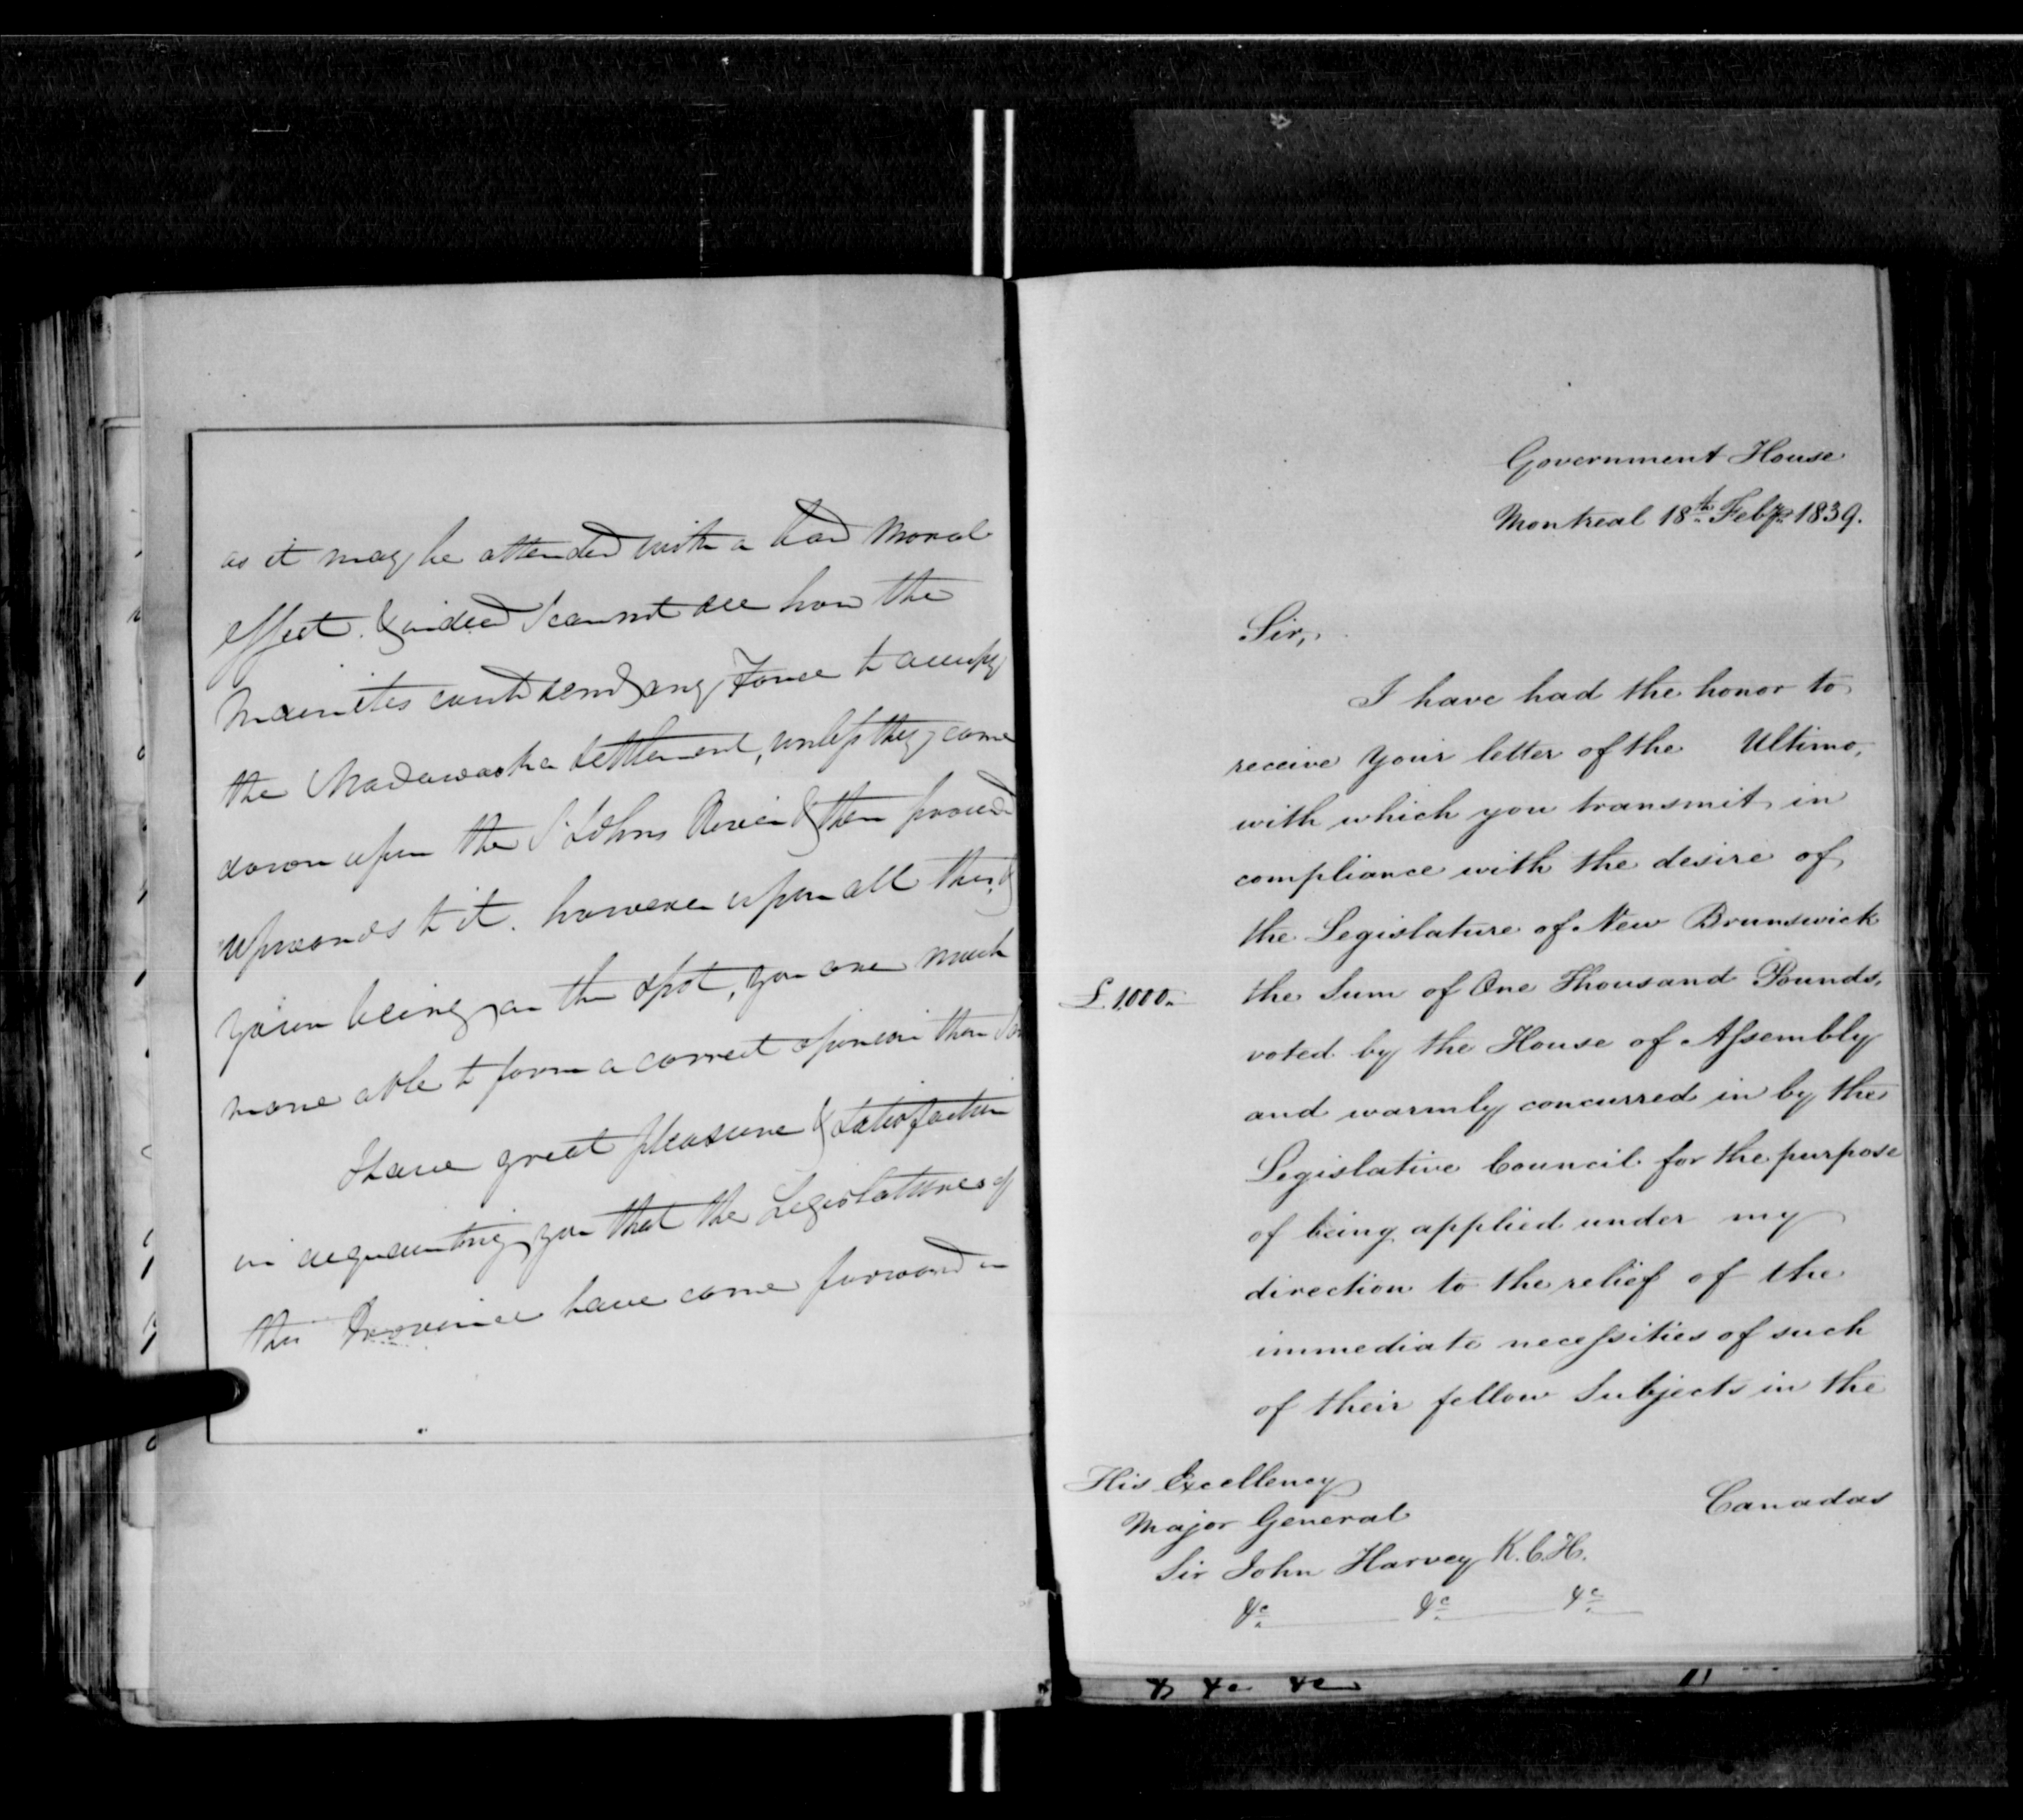 as it may be attended with a bad moral
effect. & indeed I cannot see how the
Mainites could send any Force to occupy
the Madawaska Settlement, unless they come
down upon the St Johns River & then proceed
upwards to it. however upon all this, &
your being on the spot, you are much
more able to form a correct opinion than I am
I have great pleasure & satisfaction
in acquainting you that the Legislature of
this Province have come forward in
Government House
Montreal 18th Feby 1839.
Sir,
I have had the honor to
receive your letter of the Ultimo,
with which you transmit in
compliance with the desire of
the Legislature of New Brunswick
£1000. the Sum of One Thousand Pounds,
voted by the House of Assembly
and warmly concurred in by the
Legislative Council for the purpose
of being applied under my
direction to the relief of the
immediate necessities of such
of their fellow Subjects in the
Canadas
His Excellency
Major General
Sir John Harvey K.C.H.
&c &c &c
& &c &c